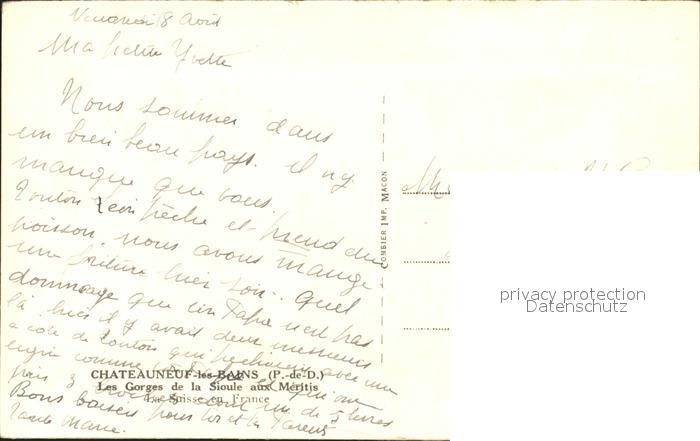 Vendredi 8 Août
Ma petite Yvette
Nous sommes dans
un bien beau pays. il n'y
manque que vous.
Tonton Léon pêche et prend du
poisson. nous avons mangé
une friture hier soir. quel
dommage que ton Papa n'est pas
là. hier il y avait deux messieurs
à côté de tonton qui pêchaient avec un
engin comme qui ont
pris 3 dont un de 5 livres
Bons baisers pour toi et tes Parents
Tante Marie.
CHATEAUNEUF-les-BAINS (P.-de-D.)
Les Gorges de la Sioule aux Méritis
La Suisse en France
COMBIER IMP. MACON
M
privacy protection
Datenschutz